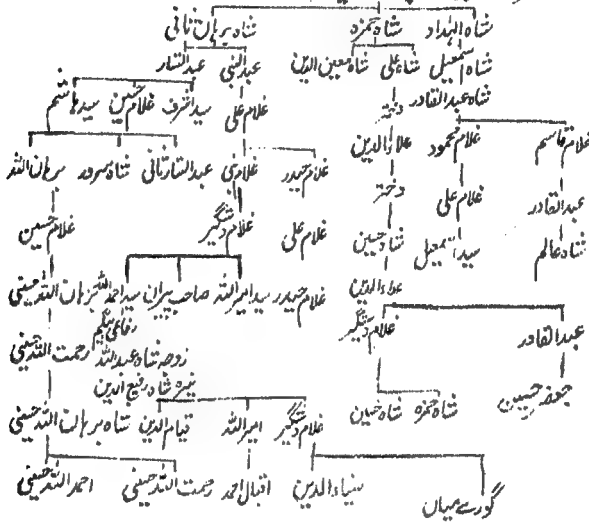 شاہ الہداد شاہ حمزہ شاہ برہان ثانی
شاہ اسمعیل شاہ علی شاہ معین الدین عبدالنبی عبدالستار
شاہ عبدالقادر دختر غلام علی سید اشرف غلام حسین سید ہاشم
غلام قاسم غلام محمود علاؤ الدین غلام حیدر غلام نبی عبدالستار ثانی شاہ سرور برہان اللہ
عبدالقادر غلام علی دختر غلام علی غلام دستگیر غلام حسین
شاہ عالم سید اسمعیل شاہ حسین
علاؤ الدین غلام حیدر سید امیر اللہ صاحب پیران سید احمد اللہ برہان اللہ حسینی
عبدالقادر غلام دستگیر رفاعی بیگم رحمت اللہ حسینی
زوجہ شاہ عبداللہ
نبیرہ شاہ رفیع الدین
جعفر حسین شاہ حمزہ شاہ حسین غلام دستگیر امیر اللہ قیام الدین شاہ برہان اللہ حسینی
گورے میاں ضیاء الدین اقبال احمد رحمت اللہ حسینی احمد اللہ حسینی